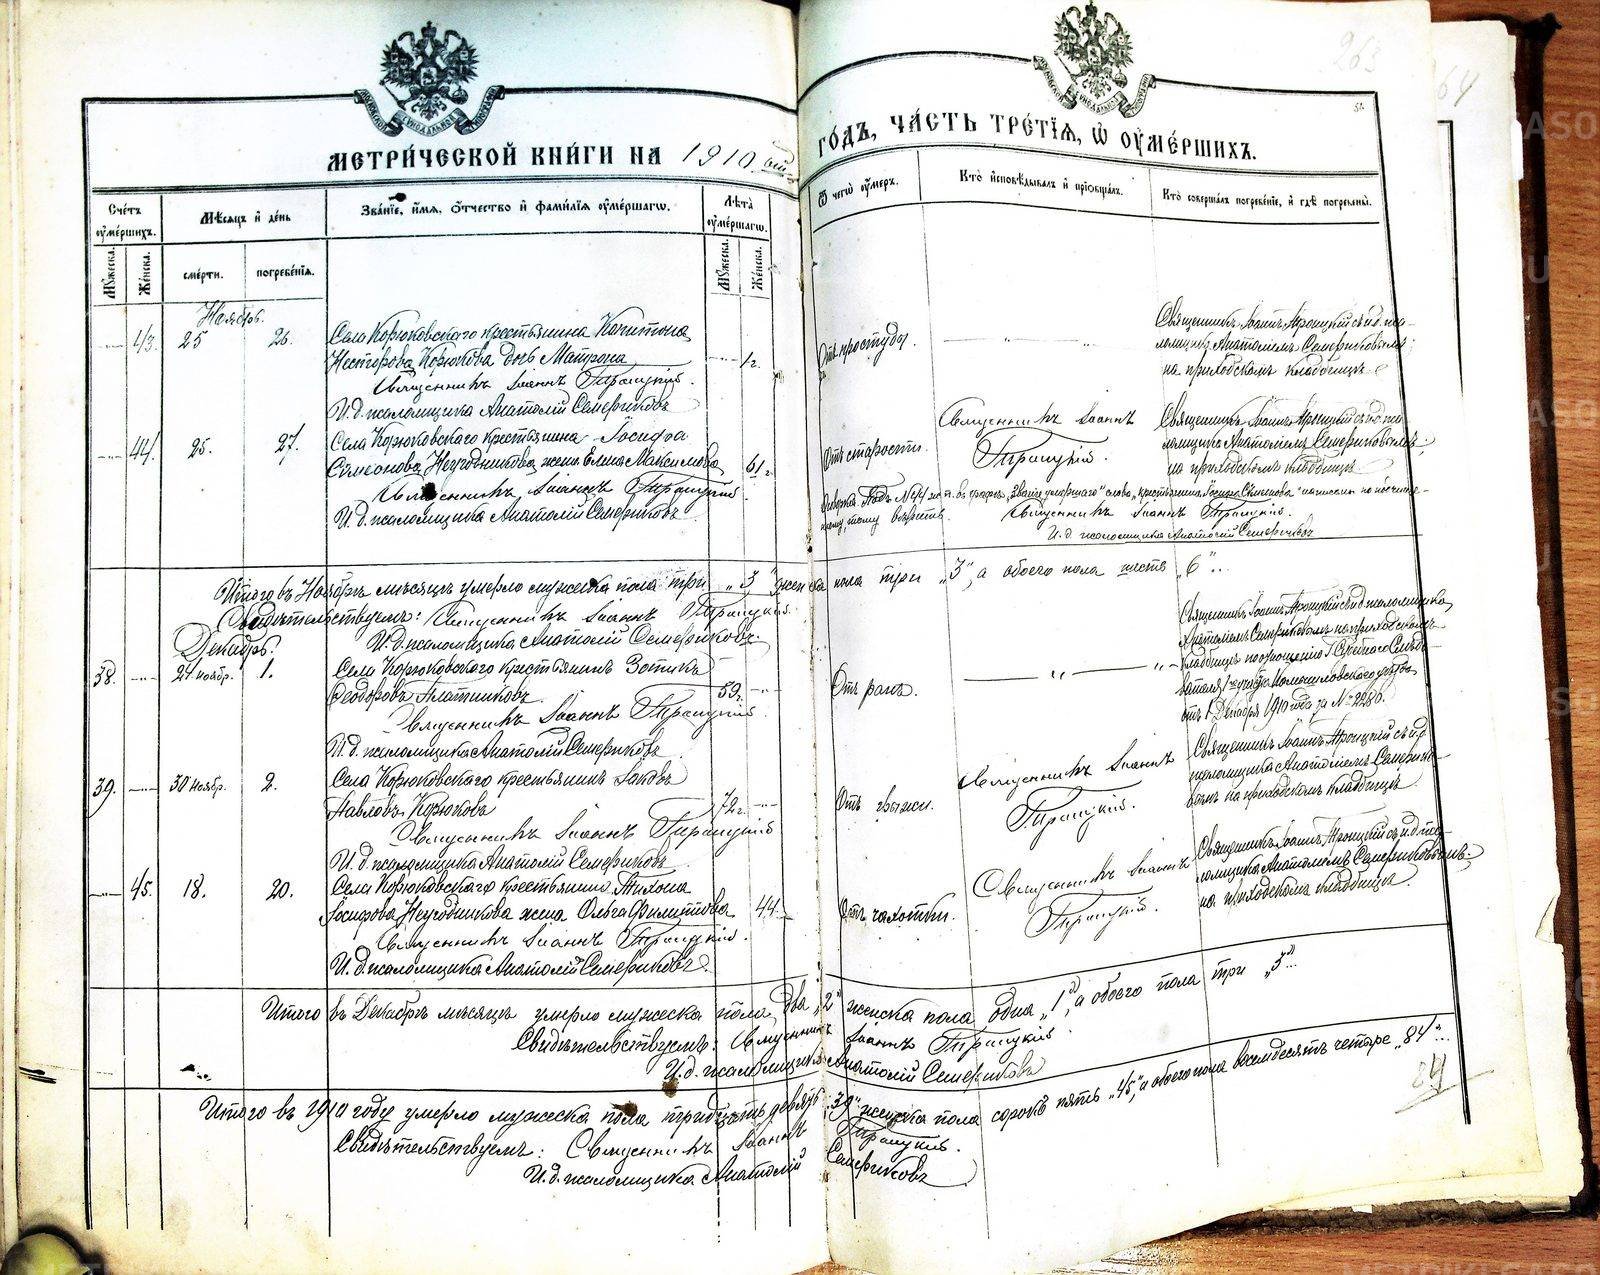 263
64
МЕТРИ́ЧЕСКОЙ КНИ́ГИ НА 1910 ый
ГО́ДЪ, ЧА́СТЬ ТРЕ́ТІѦ, Ѡ҆ ОУ҆МЕ́РШИХЪ.
Сче́тъ оу҆ме́ршихъ.
Мѣ́сѧцъ и҆ де́нь
Зва́нїе, и҆́мѧ, ѻ҆́тчество и҆ фами́лїѧ оу҆ме́ршагѡ.
Лѣ́та оу҆ме́ршагѡ.
Ѿ чегѡ̀ оу҆́меръ.
Кто̀ и҆сповѣ́дывалъ и҆ прїѡбща́лъ.
Кто̀ соверша́лъ погребе́нїе, и҆ гдѣ̀ погребены̀.
Мꙋ́жеска.
Же́нска.
сме́рти.
погребе́нїѧ.
Мꙋ́жеска.
Же́нска.
Ноябрь.
43. 25 26. Села Корюковскаго крестьянина Капитона
Несторова Корюкова дочь Матрона 1 г.
Священникъ Іоаннъ Троицкій.
И. д. псаломщика Анатолій Семериковъ
Отъ простуды.
Священникъ Іоаннъ Троицкій съ и.д. пса-
ломщика Анатоліемъ Семериковымъ
на приходскомъ кладбищѣ
44. 25. 27. Села Корюковскаго крестьянина Іосифа
Симеонова Неугодникова жена Елена Максимова 61 г.
Священникъ Іоаннъ Троицкій.
И. д. псаломщика Анатолій Семериковъ.
Отъ старости.
Священникъ Іоаннъ
Троицкій.
Священникъ Іоаннъ Троицкій съ и.д. пса-
ломщика Анатоліемъ Семериковымъ
на приходскомъ кладбищѣ
въ графѣ „Званіе умершаго" слова „крестьянина Іосифа Симеонова" написаны по
Священникъ Іоаннъ Троицкій.
И. д. псаломщика Анатолій Семериковъ
Итого въ Ноябрѣ мѣсяцѣ умерло мужеска пола три „3" женска пола три „3", а обоего пола шесть „6"..
Свидѣтельствуемъ: Священникъ Іоаннъ Троицкій.
И. д. псаломщика Анатолій Семериковъ.
Декабрь.
38. 27 ноябр. 1. Села Корюковскаго крестьянинъ Зотикъ
Ѳеодоровъ Плотниковъ 59 г.
Священникъ Іоаннъ Троицкій
И. д. псаломщика Анатолій Семериковъ
Отъ ранъ.
Священникъ Іоаннъ Троицкій съ и.д. псаломщика
Анатоліемъ Семериковымъ на приходскомъ
кладбищѣ по отношенію Г. Судебнаго Слѣдо-
вателя 1 участка Камышловскаго уѣзда
отъ 1 Декабря 1910 года за № 2280.
39. 30 ноябр. 2. Села Корюковскаго крестьянинъ Іаковъ
Павловъ Корюковъ 72 г.
Священникъ Іоаннъ Троицкій
И. д. псаломщика Анатолій Семериковъ
Отъ грыжи.
Священникъ Іоаннъ
Троицкій.
Священникъ Іоаннъ Троицкій съ и.д.
псаломщика Анатоліемъ Семерико-
вымъ на приходскомъ кладбищѣ.
45. 18. 20. Села Корюковскаго крестьянина Тихона
Іосифова Неугодникова жена Ольга Филиппова 44.
Священникъ Іоаннъ Троицкій.
И. д. псаломщика Анатолій Семериковъ.
Отъ чахотки.
Священникъ Іоаннъ
Троицкій.
Священникъ Іоаннъ Троицкій съ и.д. пса-
ломщика Анатоліемъ Семериковымъ
на приходскомъ кладбищѣ.
Итого въ Декабрѣ мѣсяцѣ умерло мужеска пола два „2" женска пола одна „1", а обоего пола три „3"..
Свидѣтельствуемъ: Священникъ Іоаннъ Троицкій.
И. д. псаломщика Анатолій Семериковъ
Итого въ 1910 году умерло мужеска пола тридцать девять „39" женска пола сорокъ пять „45", а обоего пола восемдесятъ четыре „84"..
84
Свидѣтельствуемъ: Священникъ Іоаннъ Троицкій.
И. д. псаломщика Анатолій Семериковъ